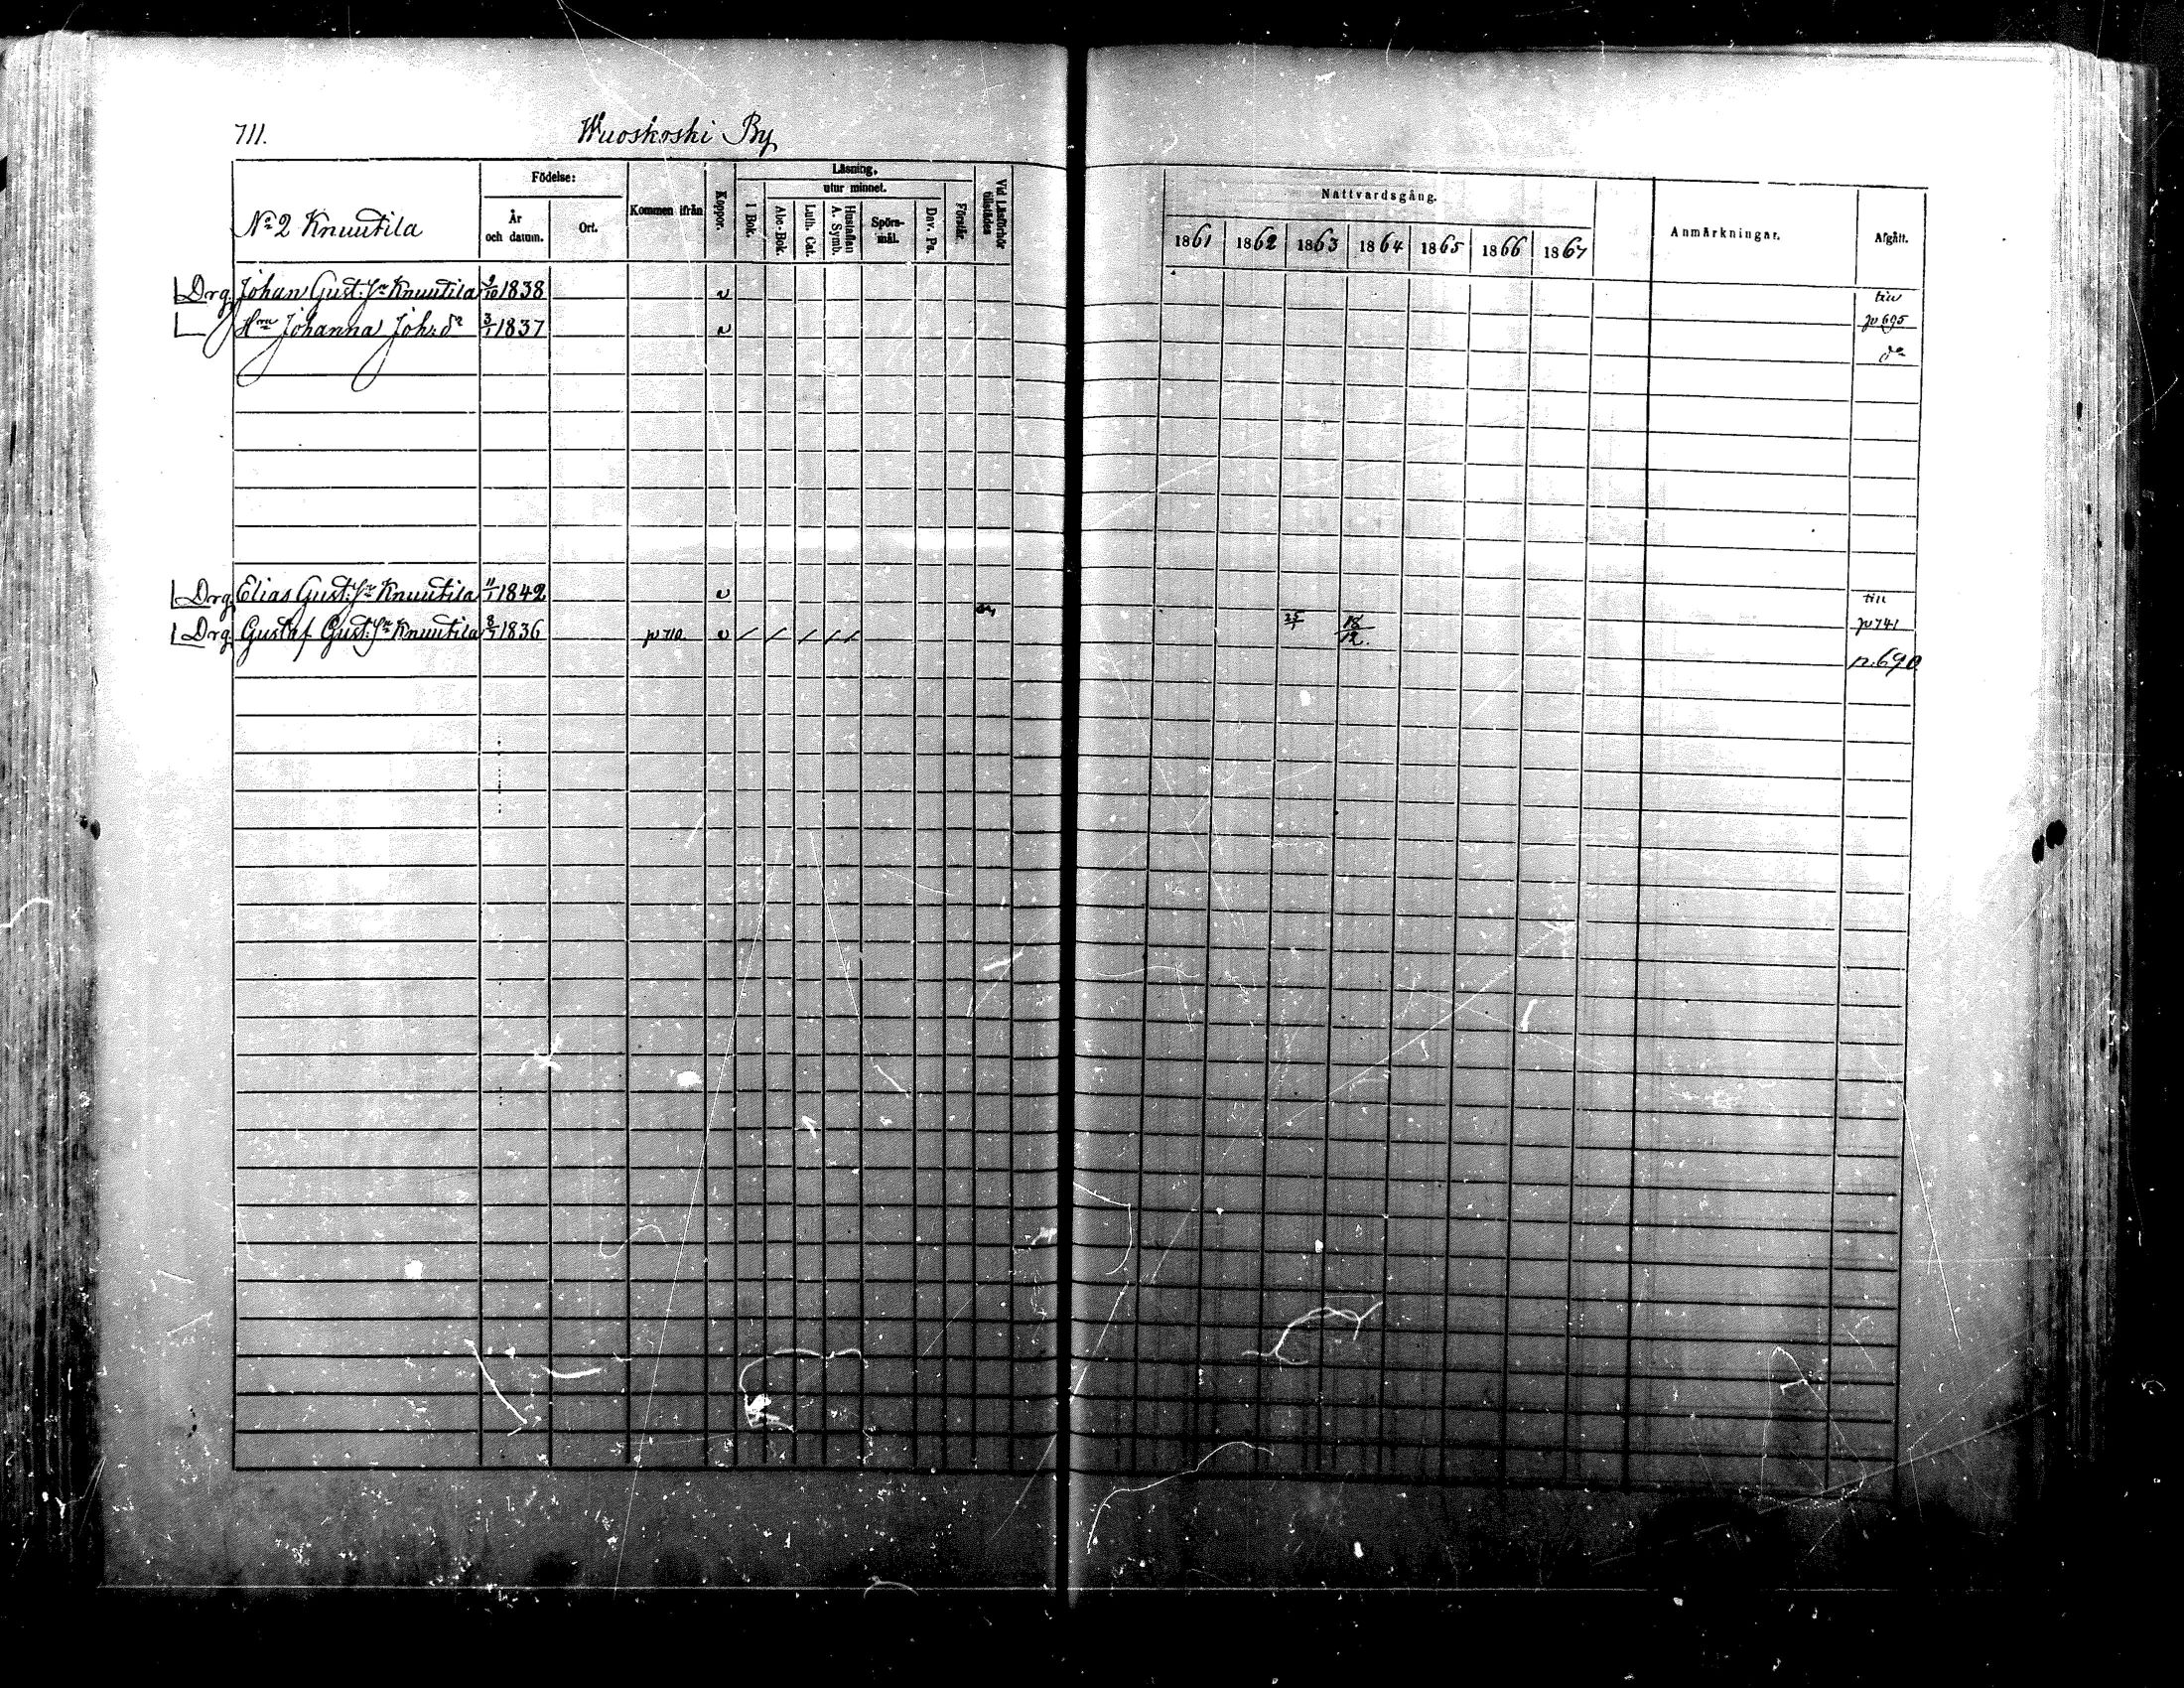 711.
Wuoskoski By
Nº 2 Knuutila
Födelse:
År och datum.
Ort.
Kommen ifrån
Koppor.
Läsning,
I Bok.
utur minnet.
Abc-Bok.
Luth. Cat.
Hustaflan A. Symb.
Spörsmål.
Dav. Ps.
Förstår.
Vid Läsförhör tillstädes
Nattvardsgång.
1861 1862 1863 1864 1865 1866 1867
Anmärkningar.
Afgått.
Drg. Johan Gust: Sn Knuutila 9/10 1838 v till p 695
Hru Johanna Joh: dr 3/1 1837 v do
Drg. Elias Gust: Sn Knuutila 11/1 1842 v till p 741
Drg. Gustaf Gust: Sn Knuutila 8/7 1836 p 710. v / / / / / 25/1 18/12. p. 690